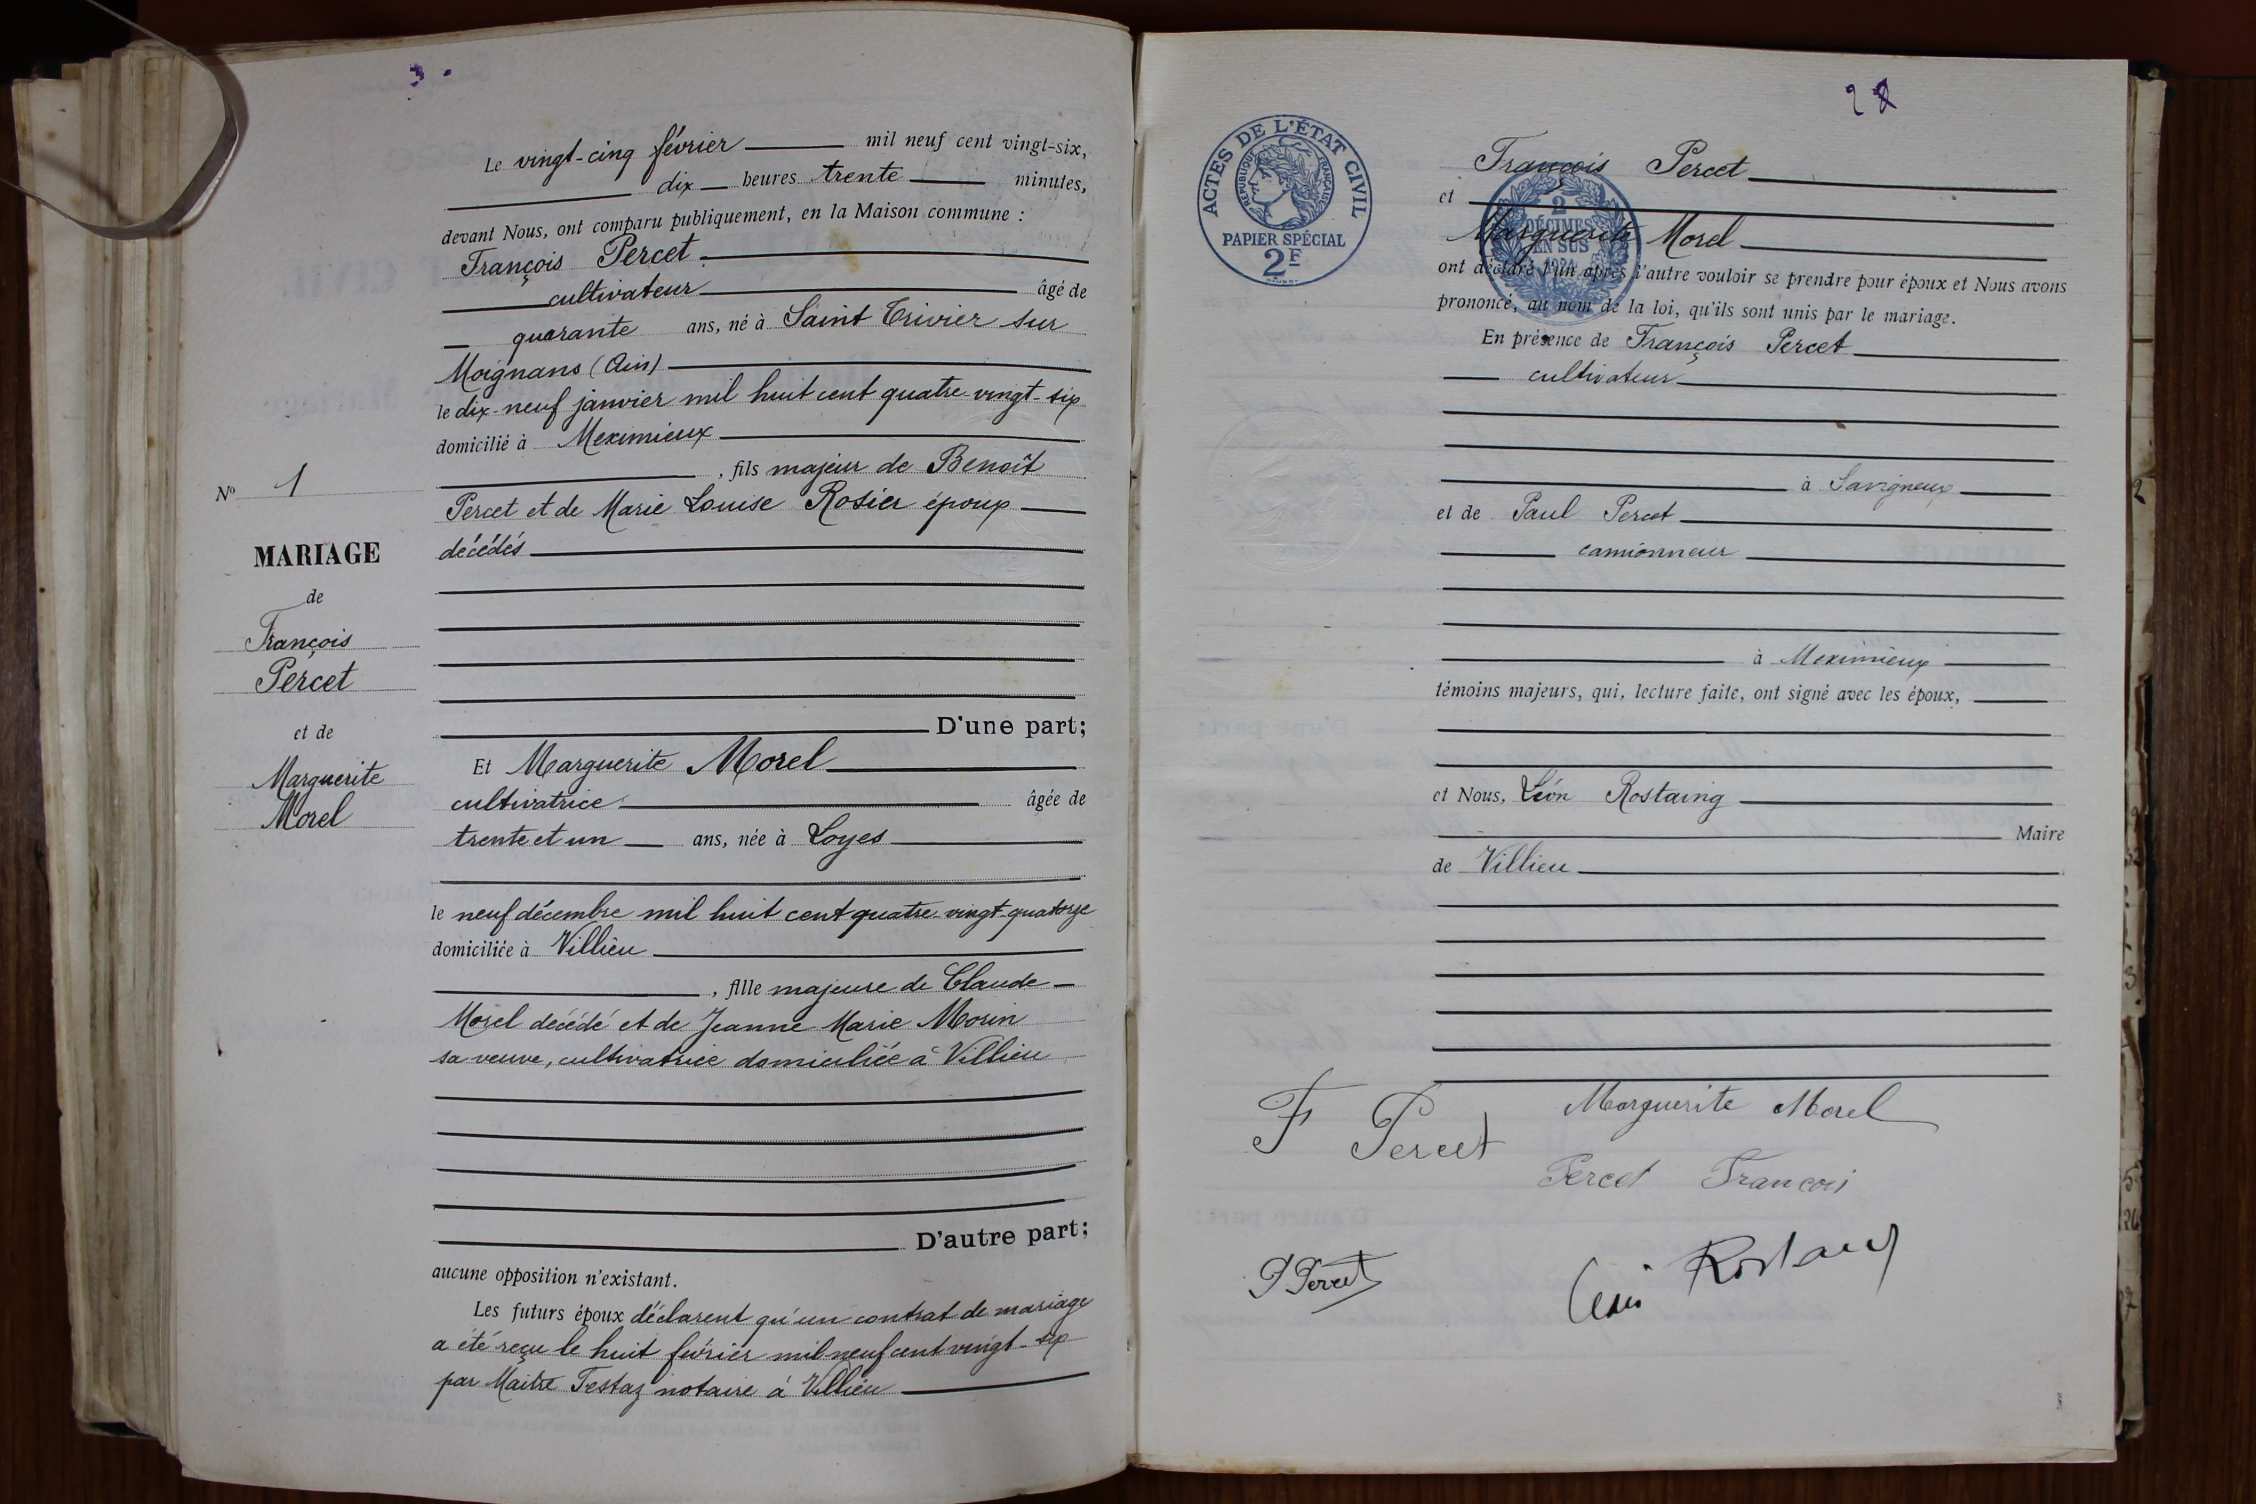 Le vingt-cinq février mil neuf cent vingt-six,
dix heures trente minutes,
devant Nous, ont comparu publiquement, en la Maison commune :
François Percet
cultivateur âgé de
quarante ans, né à Saint Trivier sur
Moignans (Ain)
le dix-neuf janvier mil huit cent quatre-vingt-six
domicilié à Meximieux
, fils majeur de Benoît
Percet et de Marie Louise Rosier époux
décédés
D'une part;
Nº 1
MARIAGE
de
François
Percet
et de
Marguerite
Morel
Et Marguerite Morel
cultivatrice âgée de
trente et un ans, née à Loyes
le neuf décembre mil huit cent quatre-vingt-quatorze
domiciliée à Villieu
, fille majeure de Claude
Morel décédé et de Jeanne Marie Morin
sa veuve, cultivatrice domiciliée à Villieu
D'autre part;
aucune opposition n'existant.
Les futurs époux déclarent qu'un contrat de mariage
a été reçu le huit février mil neuf cent vingt-six
par Maître Testaz notaire à Villieu
ACTES DE L'ÉTAT CIVIL
RÉPUBLIQUE FRANÇAISE
PAPIER SPÉCIAL
2F
2
DÉCIMES
EN SUS
François Percet
et
Marguerite Morel
ont déclaré l'un après l'autre vouloir se prendre pour époux et Nous avons
prononcé, au nom de la loi, qu'ils sont unis par le mariage.
En présence de François Percet
cultivateur
à Savigneux
et de Paul Percet
camionneur
à Meximieux
témoins majeurs, qui, lecture faite, ont signé avec les époux,
et Nous, Léon Rostaing
Maire
de Villieu
F Percet
Marguerite Morel
Percet François
P Percet
Rostaing